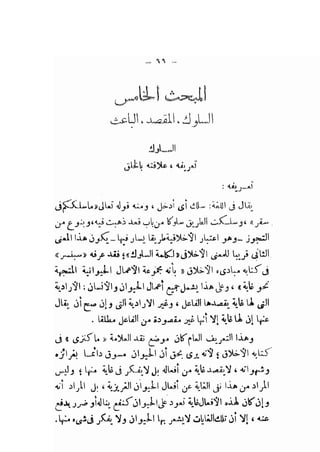 — ٦٦ —
المبحث الخامس
السلوك . المقصد . الباعث
السلوك
تعريفه ، علاقته بالخلق
تعريفه :
يقال فى اللغة : سلك أى أدخل ، ومنه قوله تعالى « ماسلككم فى
سقر » ، وسلكت الطريق سلوكا من باب قعد ذهبت فيه ، وبنوع من
التجوز – وهو اعتبار الأخلاقية طريقا يسار فيها – يكون هذا المعنى
الثانى قريبا للمعنى الأخلاقى « لكلمة السلوك » ؛ فقد عرفه « سبنسر »
فى كتابه مبادىء الأخلاق « بأنه مجموعة الأعمال الحيوانية المتجهة
نحو غاية » ، وعلى هذا يشمل جميع أعمال الحيوان والأنسان : الارادية
التى لها غاية يقصدها الفاعل ، وغير الارادية التى وإن صح أن يقال
عنها إن لها غاية إلا أنها غير مقصودة من الفاعل مطلقا .
وهذا التعريف العام كان موضع نقد العلامة « ماكنزى » فى
كتابه الأخلاق ؛ لأنه يرى بحق أن الحيوان مسوق دائما بغرائزه
وشهواته ، لايقصد غاية من أفعاله بل لايفكر فى غاية منها ؛ وليس
المراد من هذا نفى الغاية عن أفعال الحيوان الغريزية ، بل المراد أنه
وإن كان لهذه الأفعال غاية تعود على الحيوان كنفع يناله أو ضرر يدفع
عنه ، إلا أن تلك الغايات لايشعر بها الحيوان ولا يفكر فى شىء منها .